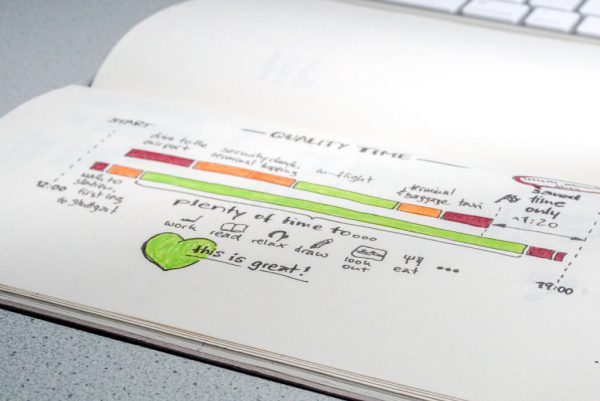 QUALITY TIME
START
drive to the
airport
security check,
terminal hopping
in-flight
terminal
& baggage
taxi
saved
time
only
~1:20
12:00
walk to
station,
first leg
to Stuttgart
19:00
plenty of time to....
work read relax draw look
out eat ...
this is great!